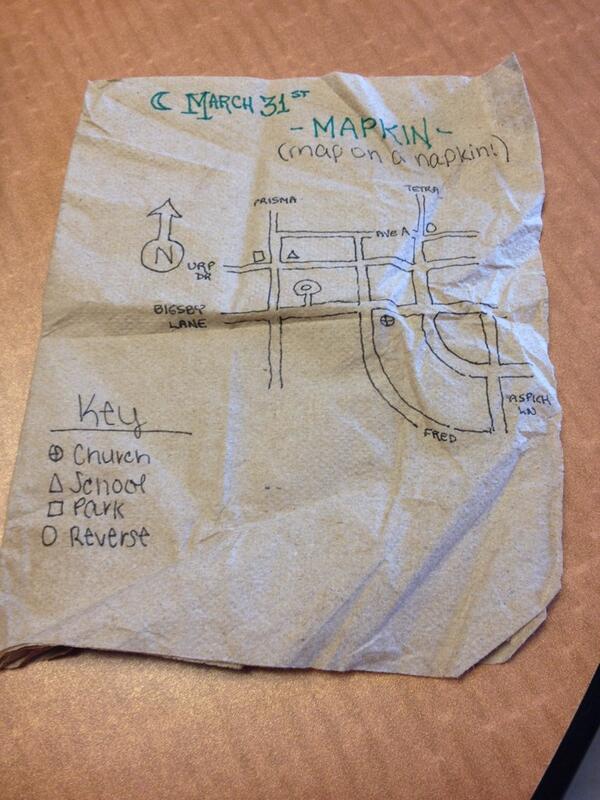 MARCH 31ST
- MAPKIN -
(map on a napkin!)
TETRA
PRISMA
AVE A
N
URP
DR
BIGSBY
LANE
ASPICH
LN
FRED
Key
Church
School
Park
Reverse